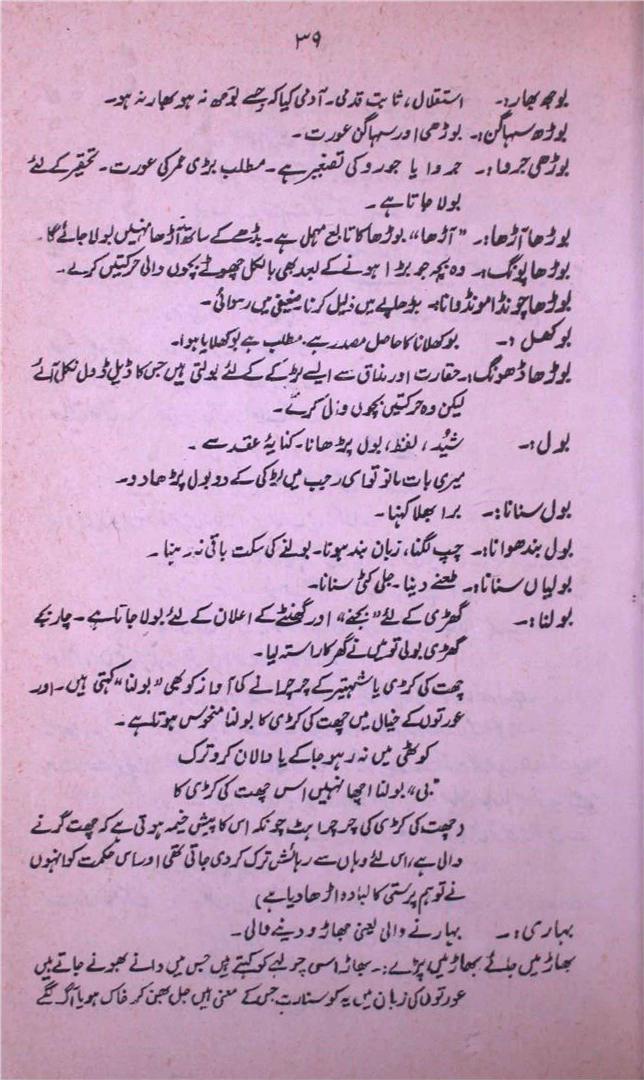 ۳۹
بوجھ بھار:۔ استقلال، ثابت قدمی۔ آدمی کیا کہ جسے بوجھ نہ ہو بھار نہ ہو۔
بوڑھ سہاگن:۔ بوڑھی اور سہاگن عورت۔
بوڑھی جروا:۔ جروا یا جورو کی تصغیر ہے۔ مطلب بڑی عمر کی عورت۔ تحقیر کے لئے
بولا جاتا ہے۔
بوڑھا آڑھا:۔ "آڑھا" بوڑھا کا تابع مہمل ہے۔ بڈھے کے ساتھ آڑھا نہیں بولا جائے گا۔
بوڑھا پونگ:۔ وہ بچہ جو بڑا ہونے کے بعد بھی بالکل چھوٹے بچوں والی حرکتیں کرے۔
بوڑھا چونڈا مونڈوانا:۔ بڑھاپے میں ذلیل کرنا۔ ضعیفی میں رسوائی۔
بوکھل:۔ بوکھلانا کا حاصل مصدر ہے۔ مطلب ہے بوکھلایا ہوا۔
بوڑھا ڈھونگ:۔ حقارت اور مذاق سے ایسے لڑکے کے لئے بولتی ہیں جس کا ڈیل ڈول نکل آئے
لیکن وہ حرکتیں بچوں والی کرے۔
بول:۔ شبُد، لفظ، بول پڑھانا۔ کنایۂ عقد سے۔
میری بات مانو تو اسی رجب میں لڑکی کے دو بول پڑھا دو۔
بول سنانا:۔ برا بھلا کہنا۔
بول بندھوانا:۔ چپ لگنا، زبان بند ہونا۔ بولنے کی سکت باقی نہ رہنا۔
بولیاں سنانا:۔ طعنے دینا۔ جلی کٹی سنانا۔
بولنا:۔ گھڑی کے لئے "بجنے" اور گھنٹے کے اعلان کے لئے بولا جاتا ہے۔ چار بجے
گھڑی بولی تو میں نے گھر کا راستہ لیا۔
چھت کی کڑی یا شہتیر کے چرچرانے کی آواز کو بھی "بولنا" کہتی ہیں۔ اور
عورتوں کے خیال میں چھت کی کڑی کا بولنا منحوس ہوتا ہے۔
کوٹھی میں نہ رہو جا کے یا دالان کرو ترک
"بی" بولنا اچھا نہیں اس چھت کی کڑی کا
(چھت کی کڑی کی چرچراہٹ چونکہ اس کا پیش خیمہ ہوتی ہے کہ چھت گرنے
والی ہے، اس لئے وہاں سے رہائش ترک کر دی جاتی تھی اور اس حکمت کو انہوں
نے توہم پرستی کا لبادہ اڑھا دیا ہے)
بہاری:۔ بہارنے والی یعنی جھاڑو دینے والی۔
بھاڑ میں جائے بھاڑ میں پڑے:۔ بھاڑ اسی چولہے کو کہتے ہیں جس میں دانے بھونے جاتے ہیں
عورتوں کی زبان میں یہ کوسنا ہے جس کے معنی ہیں جل بھن کر خاک ہو یا آگ لگے